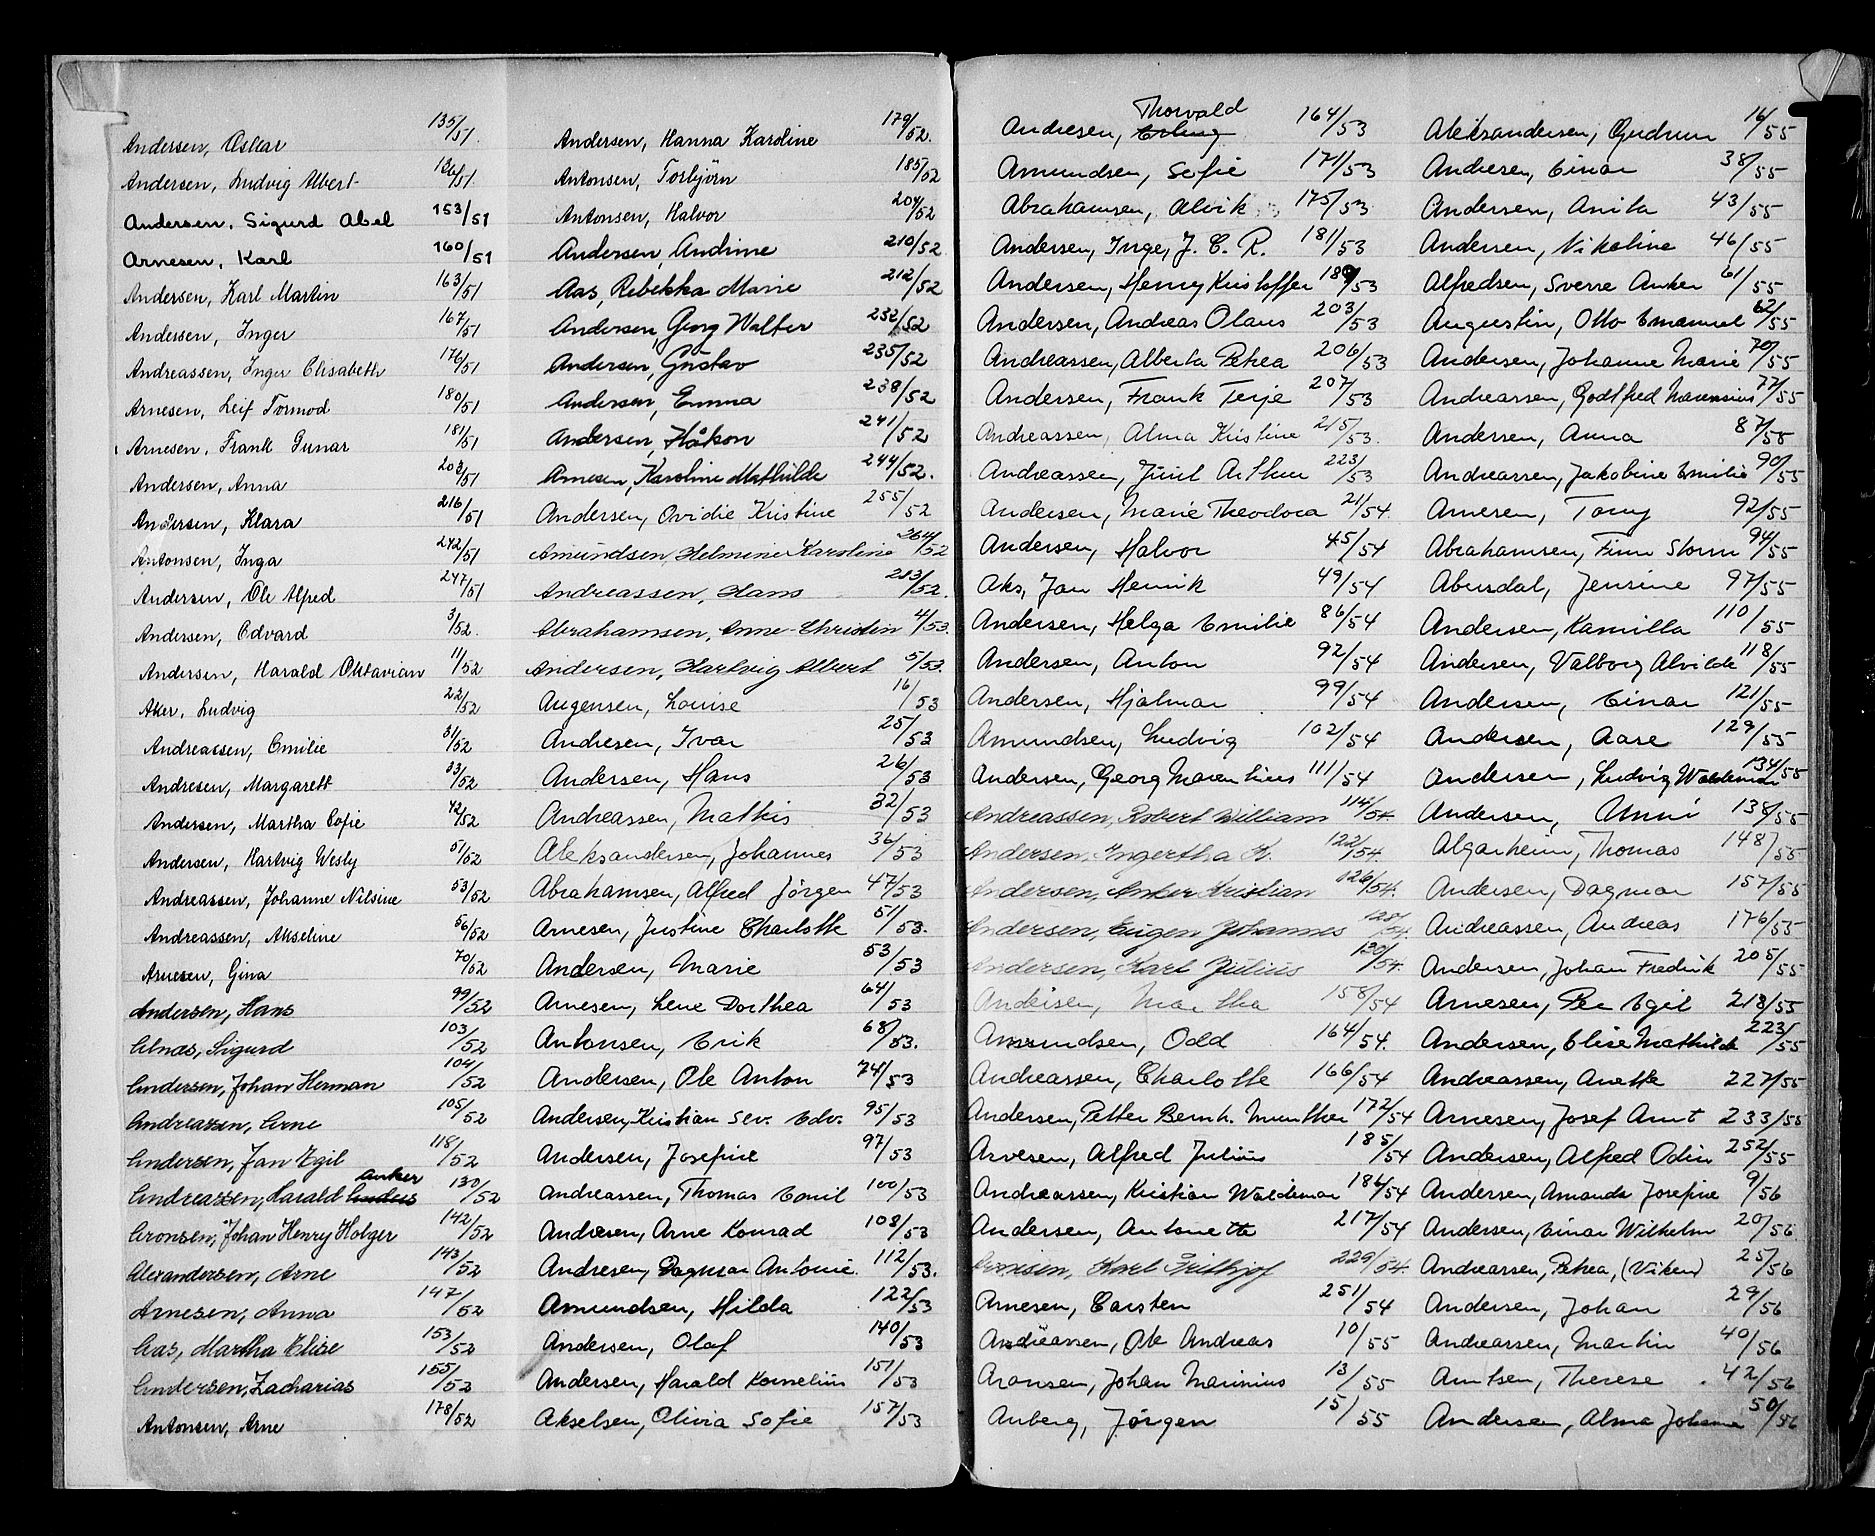 Andersen, Oskar 135/51
Andersen, Ludvig Albert 136/51
Andersen, Sigurd Abel 153/51
Arnesen, Karl 160/51
Andersen, Karl Martin 163/51
Andersen, Inger 167/51
Andreassen, Inger Elisabeth 176/51
Arnesen, Leif Tormod 180/51
Arnesen, Frank Gunar 181/51
Andersen, Anna 208/51
Andersen, Klara 216/51
Antonsen, Inga 242/51
Andersen, Ole Alfred 247/51
Andersen, Edvard 3/52.
Andersen, Harald Oktavian 11/52
Aker, Ludvig 22/52
Andreassen, Emilie 31/52
Andresen, Margarett 33/52
Andersen, Martha Sofie 42/52
Andersen, Hartvig Wesly 51/52
Andreassen, Johanne Nilsine 53/52
Andreassen, Akseline 56/52
Arnesen, Gina 70/52
Andersen, Hans 99/52
Alnæs, Sigurd 103/52
Andersen, Johan Herman 104/52
Andreassen, Arne 105/52
Andersen, Jan Egil 118/52
Anker
Andreassen, Harald Anders 130/52
Aronsen, Johan Henry Holger 142/52
Alexandersen, Arne 143/52
Arnesen, Anna 147/52
Aas, Martha Elise 153/52
Andersen, Zacharias 155/52
Antonsen, Arne 178/52
Andersen, Hanna Karoline 179/52.
Antonsen, Torbjörn 185/52
Antonsen, Halvor 204/52
Andersen, Andrine 210/52
Aas, Rebekka Marie 212/52
Andersen, Georg Walter 232/52
Andersen, Gustav 235/52
Andersen, Emma 238/52
Andersen, Håkon 241/52
Arnesen, Karoline Mathilde 244/52.
Andersen, Ovidie Kristine 255/52
Amundsen, Helmine Karoline 264/52
Andreassen, Hans 283/52.
Abrahamsen, Anne-Christin 4/53.
Andersen, Hartvig Albert 5/53.
Augensen, Louise 16/53
Andresen, Ivar 25/53
Andersen, Hans 26/53
Andreassen, Mathis 32/53
Aleksandersen, Johannes 36/53
Abrahamsen, Alfred Jørgen 47/53
Arnesen, Justine Charlotte 51/53.
Andersen, Marie 53/53
Arnesen, Lene Dorthea 64/53
Antonsen, Erik 68/53.
Andersen, Ole Anton 74/53
Andersen, Kristian Sev. Edv. 95/53
Andersen, Josefine 97/53
Andreassen, Thomas Emil 100/53
Andresen, Arne Konrad 108/53
Andresen, Dagmar Antonie. 112/53.
Amundsen, Hilda 122/53
Andersen, Olaf 140/53
Andersen, Harald Kornelius 151/53
Akselsen, Olivia Sofie 157/53
Thorvald
Andresen, Erling 164/53
Amundsen, Sofie 171/53
Abrahamsen, Alvik 175/53
Andersen, Inge, J. C. R. 181/53
Andersen, Henry Kristoffer 189/53
Andersen, Andreas Olaus 203/53
Andreassen, Alberta Petrea 206/53
Andersen, Frank Terje 207/53
Andreassen, Alma Kristine 215/53.
Andreassen, Juul Arthur 223/53
Andersen, Marie Theodora 21/54.
Andersen, Halvor 45/54
Aks, Jan Henrik 49/54
Andersen, Helga Emilie 86/54
Andersen, Anton 92/54
Andersen, Hjalmar 99/54
Amundsen, Ludvig 102/54
Andersen, Georg Marentius 111/54
Andreassen, Robert William 114/54.
Andersen, Ingertha K. 122/54.
Andersen, Anker Kristian 126/54.
Andersen, Eugen Johannes 128/54.
Andersen, Karl Julius 130/54.
Andersen, Martha 158/54
Asmundsen, Odd 164/54.
Andreassen, Charlotte 166/54
Andersen, Petter Bernh. Munther 172/54
Arvesen, Alfred Julius 185/54
Andreassen, Kristian Waldemar 186/54
Andersen, Antonette 217/54
Karl Frithjof 229/54.
Arnesen, Carsten 251/54
Andreassen, Ole Andreas 10/55
Aronsen, Johan Marinius 13/55
Anberg, Jørgen 15/55
Aleksandersen, Gudrun 16/55
Andresen, Einar 38/55
Andersen, Anita 43/55
Andersen, Nikoline 46/55
Alfredsen, Sverre Anker 61/55
Augustin, Otto Emanuel 62/55
Andersen, Johanne Marie 70/55
Andreassen, Godtfred Marensius 77/55
Andersen, Anna 87/55
Andreassen, Jakobine Emilie 90/55
Arnesen, Tomy 92/55
Abrahamsen, Finn Storm 94/55
Abusdal, Jensine 97/55
Andersen, Kamilla 110/55
Andersen, Valborg Alvilde 118/55
Andersen, Einar 121/55
Andersen, Aase 129/55
Andersen, Ludvig Waldemar 134/55
Andersen, Unni 138/55
Algarheim, Thomas 148/55
Andersen, Dagmar 157/55
Andreassen, Andreas 176/55
Andersen, Johan Fredrik 205/55
Arnesen, Per Egil 213/55
Andersen, Elise Mathilde 223/55
Andreassen, Anette 227/55
Arnesen, Josef Arnt 233/55
Andersen, Alfred Odin 252/55
Andersen, Amanda Josefine 9/56
Andersen, Einar Wilhelm 20/56.
Andreassen, Petrea, (Viken) 25/56
Andersen, Johan 29/56
Andreassen, Martin 40/56
Arntsen, Therese 42/56
Andersen, Alma Johanne 50/56